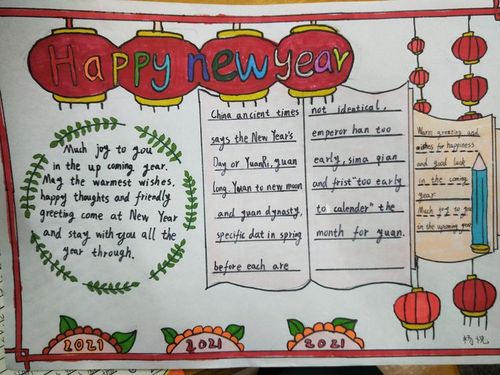 Happy new year
Much joy to you
in the up coming year.
May the warmest wishes,
happy thoughts and friendly
greeting come at New Year
and stay with you all the
year through.
China ancient times
says the New Year's
Day or YuanRi, yuan
long Yuan to new moon
and yuan dynasty,
specific dat in spring
before each are
not identical,
emperor han too
early, sima qian
and frist "too early
to calender" the
month for yuan.
Warm greezing and
wishes for happiness
and good luck
in the coming
year.
Much joy to you
in the waming year
2021
2021
2021